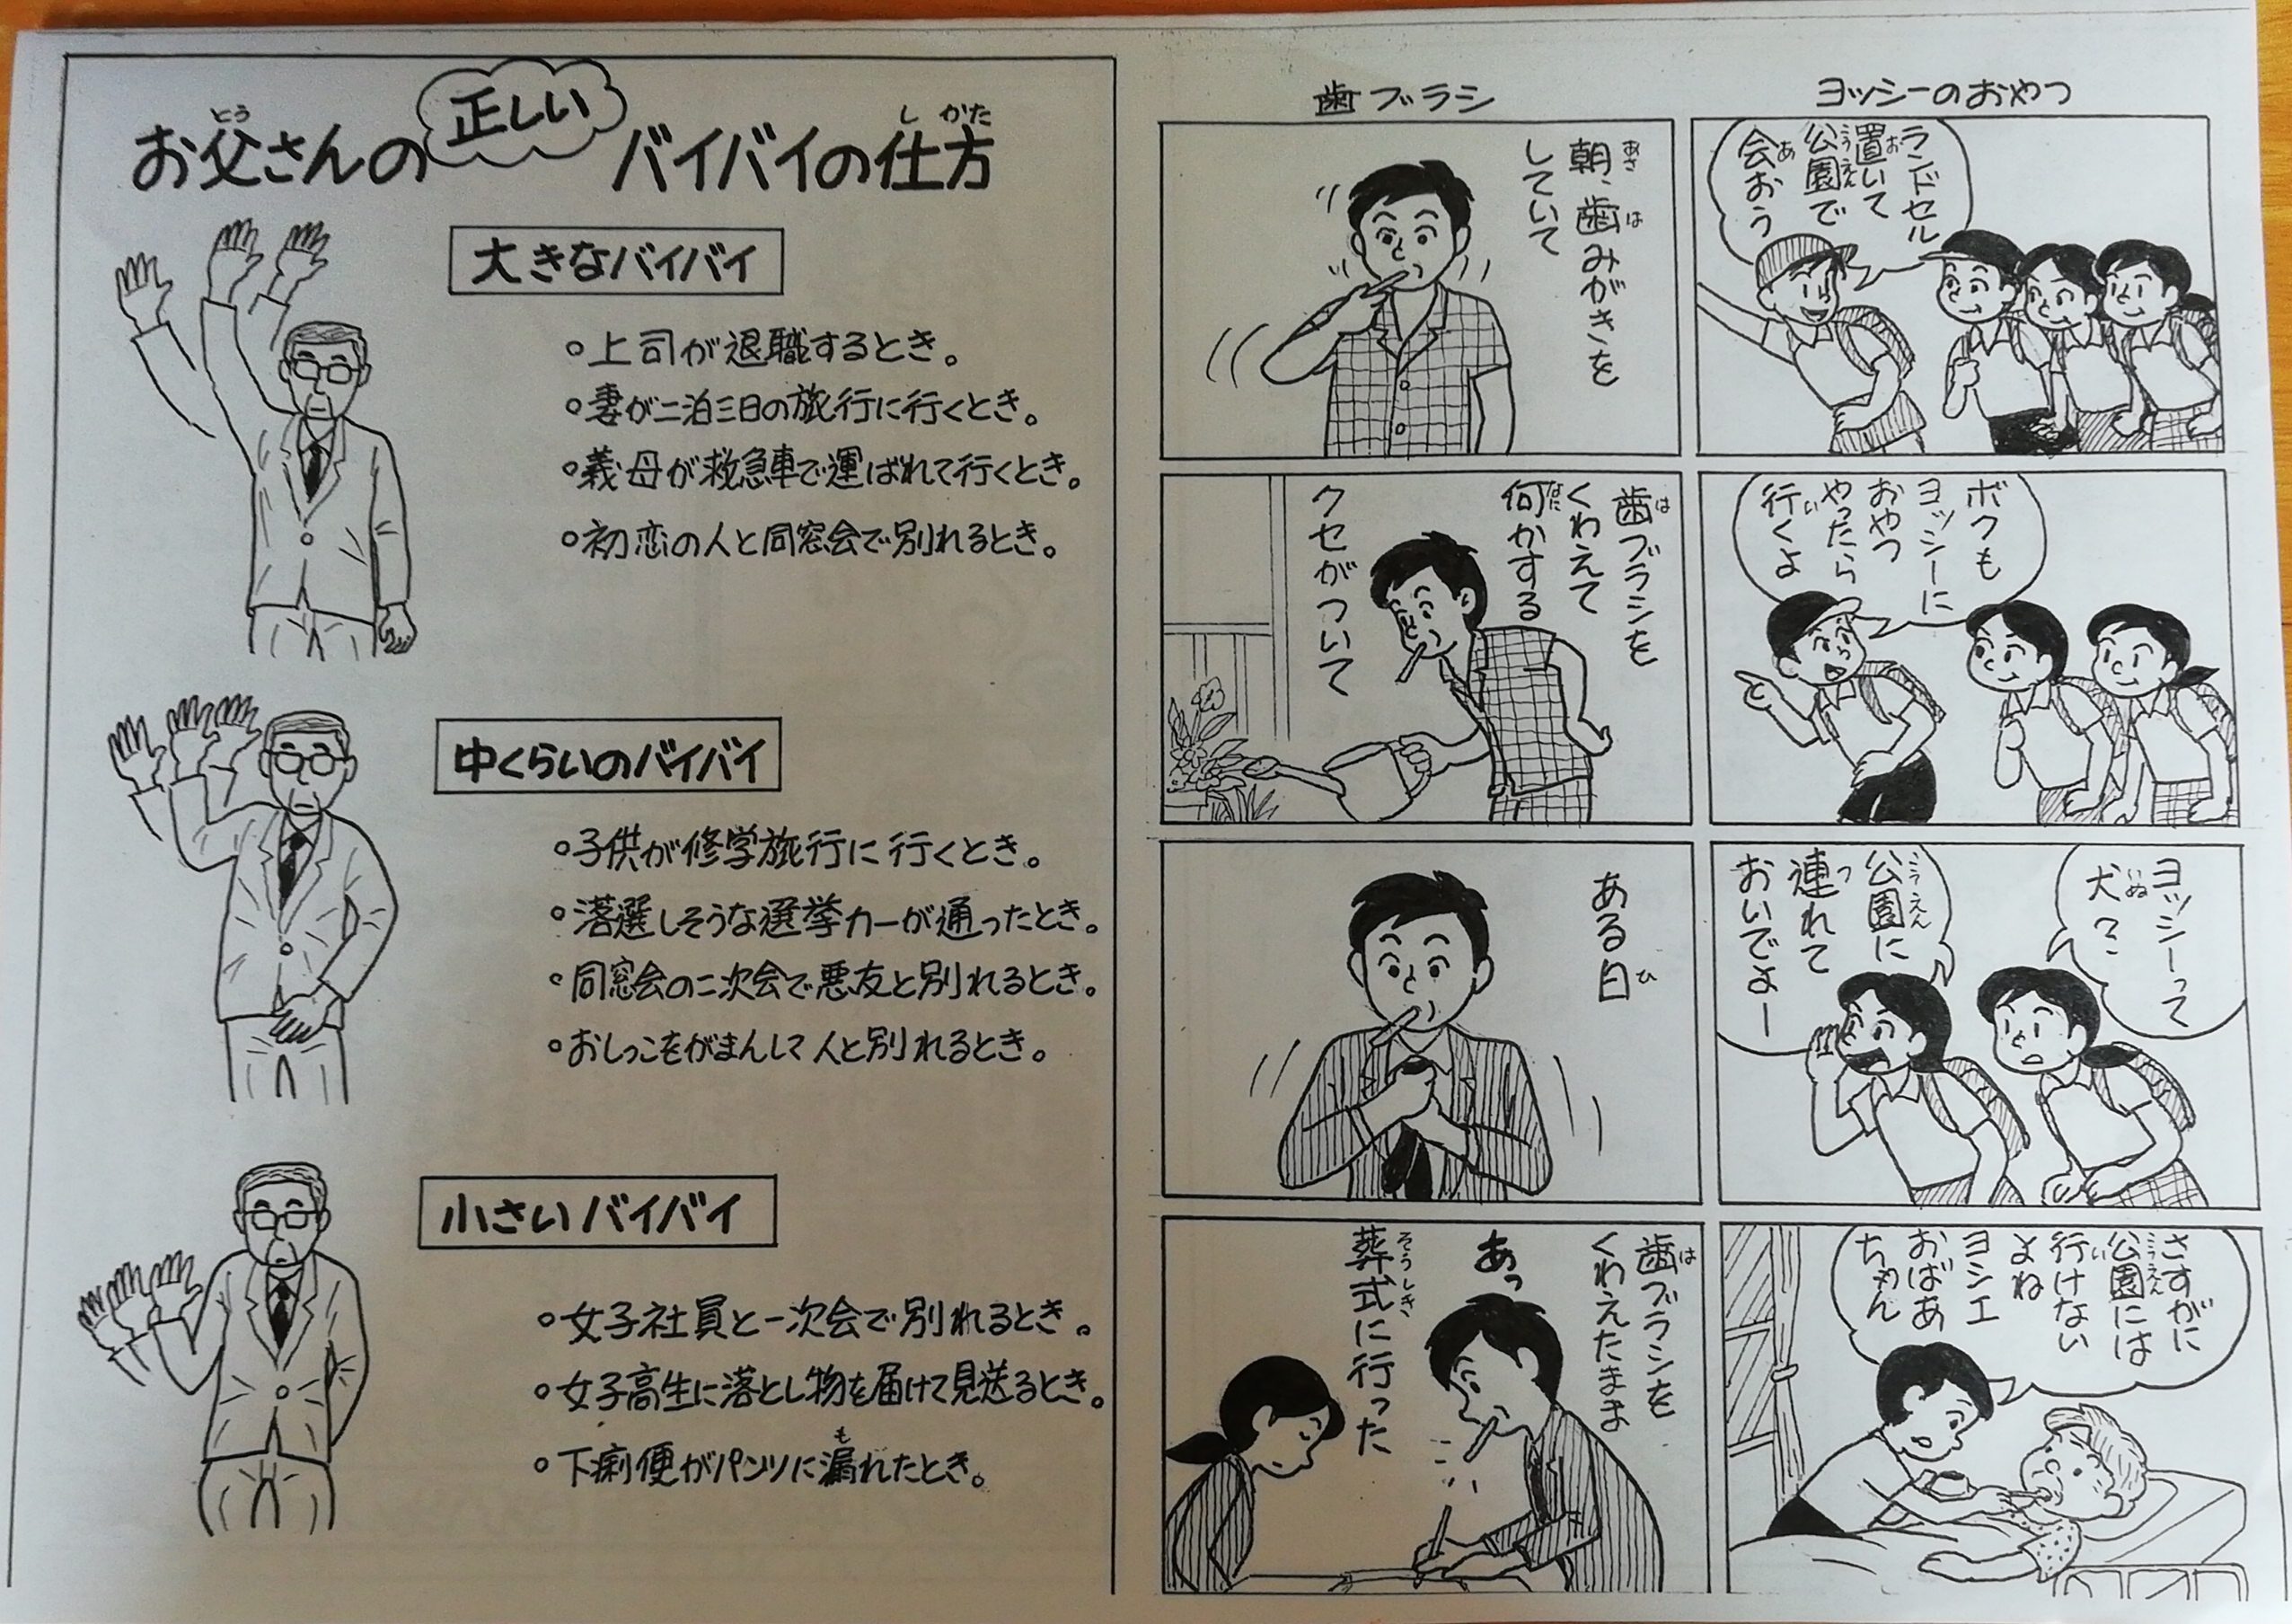 ヨッシーのおやつ
ランドセル
置いて
公園で
会おう
ボクも
ヨッシーに
おやつ
やったら
行くよ
ヨッシーって
犬?
公園に
連れて
おいでよー
さすがに
公園には
行けない
よね
ヨシエ
おばあ
ちゃん
歯ブラシ
朝、歯みがきを
していて
歯ブラシを
くわえて
何かする
クセがついて
ある日
歯ブラシを
くわえたまま
あっ
葬式に行った
お父さんの正しいバイバイの仕方
大きなバイバイ
○上司が退職するとき。
○妻が二泊三日の旅行に行くとき。
○義母が救急車で運ばれて行くとき。
○初恋の人と同窓会で別れるとき。
中くらいのバイバイ
○子供が修学旅行に行くとき。
○落選しそうな選挙カーが通ったとき。
○同窓会の二次会で悪友と別れるとき。
○おしっこをがまんして人と別れるとき。
小さいバイバイ
○女子社員と一次会で別れるとき。
○女子高生に落とし物を届けて見送るとき。
○下痢便がパンツに漏れたとき。